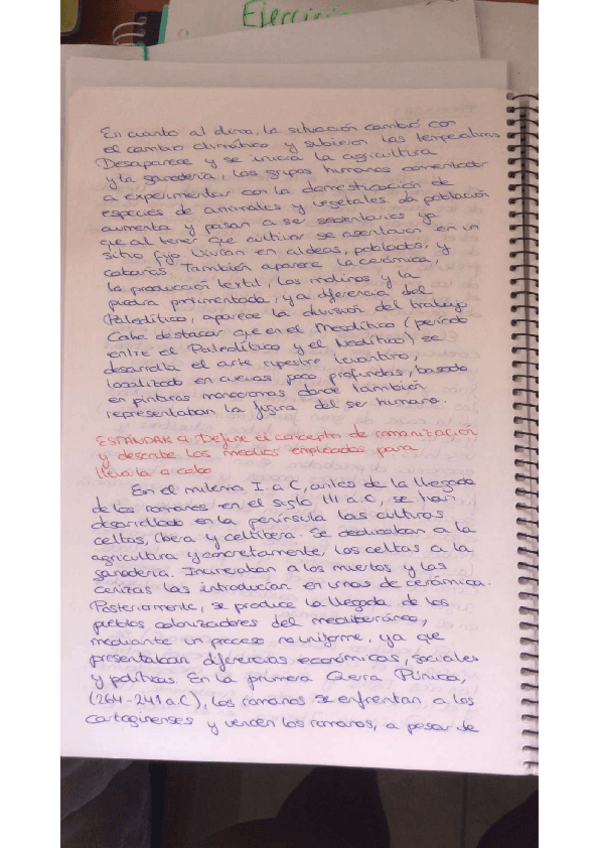 Ejercicio
En cuanto al clima, la situación cambió con
el cambio climático y subieron las temperaturas
Desaparece y se inicia la agricultura
y la ganadería, los grupos humanos comentador
a experimentar con la domesticación de
especies de animales y vegetales. La población
aumenta y pasan a ser sedentarios ya
que al tener que cultivar se asentaron en un
sitio fijo. Vivían en aldeas, poblados y
cabañas. También aparece la cerámica,
la producción textil, los molinos y la
piedra pulimentada, y a diferencia del
Paleolítico, aparece la división del trabajo
Cabe destacar que en el Mesolítico (período
entre el Paleolítico y el Neolítico) se
desarrolla el arte rupestre levantino,
localizado en cuevas poco profundas, basado
en pinturas monocromas donde también
representaban la figura del ser humano.
ESTÁNDAR 9. Define el concepto de romanización
y describe los medios empleados para
llevarla a cabo
En el milenio I. a C, antes de la llegada
de los romanos en el siglo III a.C, se han
desarrollado en la península las culturas
celtas, íbera y celtíbera. Se dedicaban a la
agricultura y concretamente, los celtas a la
ganadería. Incineraban a los muertos y las
cenizas las introducían en urnas de cerámica.
Posteriormente, se produce la llegada de los
pueblos colonizadores del mediterráneo,
mediante un proceso no uniforme, ya que
presentaban diferencias económicas, sociales
y políticas. En la primera Guerra Púnica,
(264-241 a.C), los romanos se enfrentan a los
cartaginenses y vencen los romanos, a pesar de